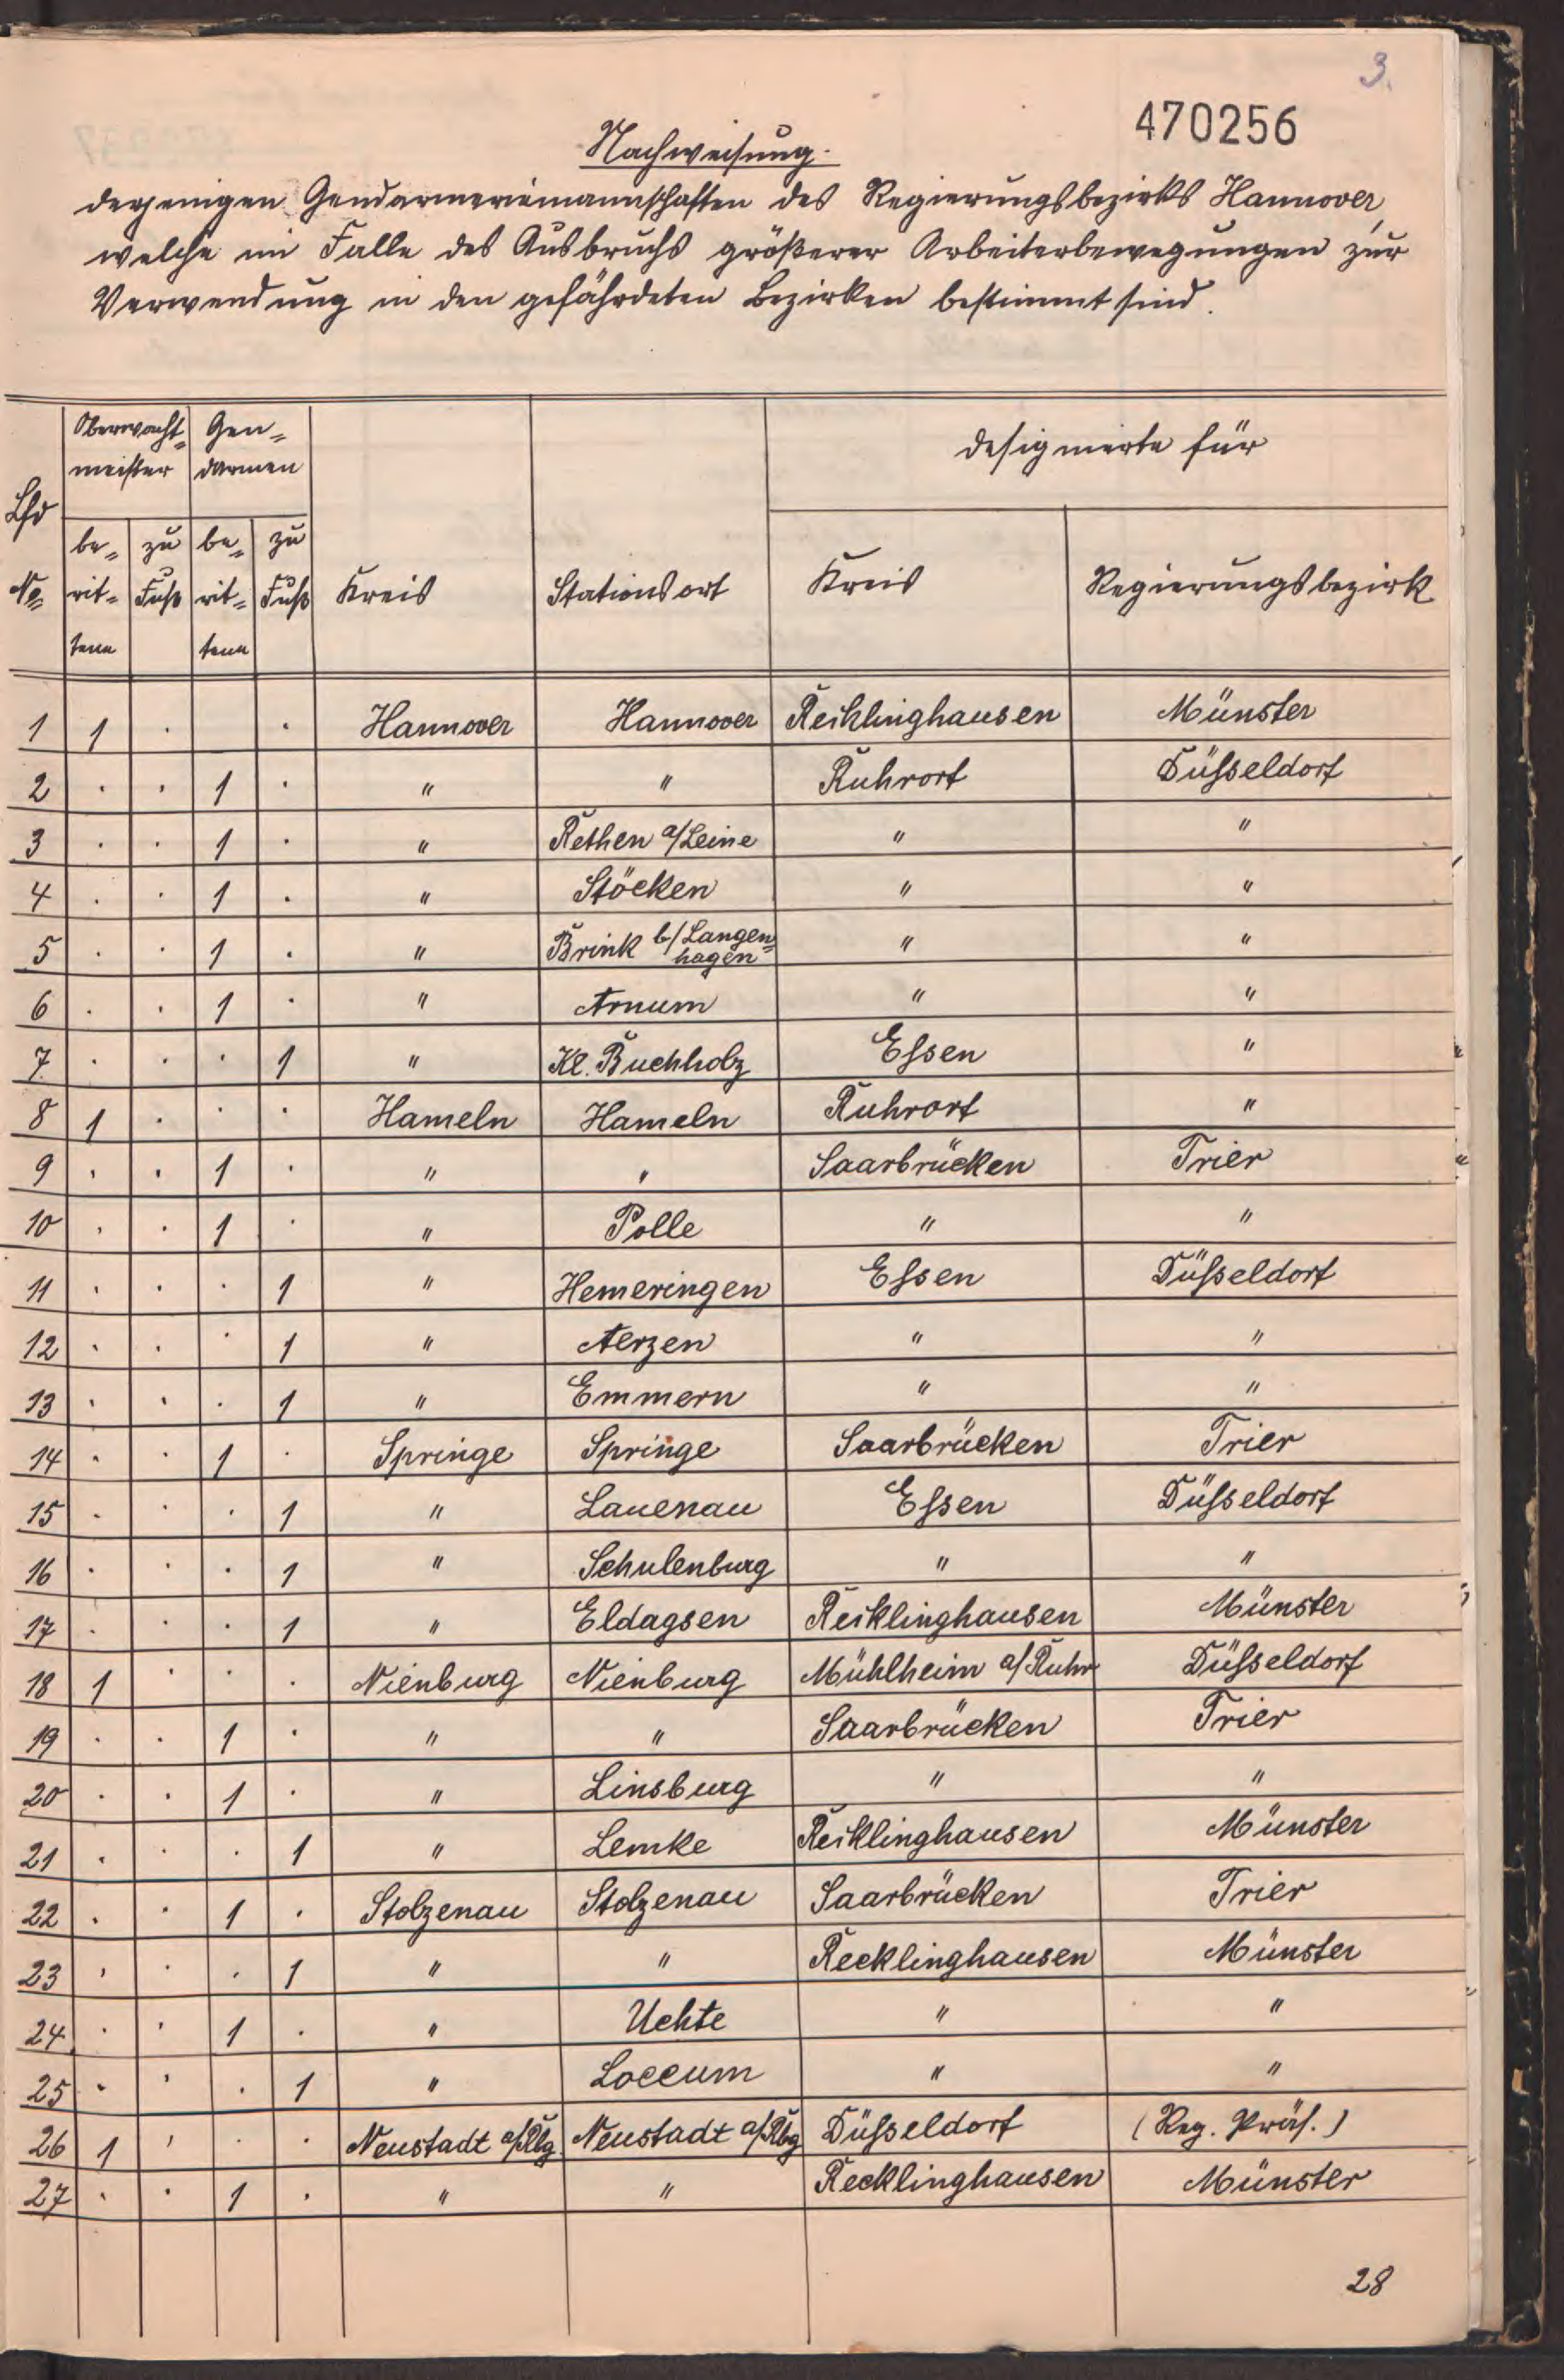 3.
470256
Nachweisung.
derjenigen Gendarmeriemannschaften des Regierungsbezirks Hannover,
welche im Falle des Ausbruchs größerer Arbeiterbewegungen zur
Verwendung in den gefährdeten Bezirken bestimmt sind.
Lfd No | Oberwacht=meister | Gen=darmen | Kreis | Stationsort | designierte für
be=rit=tene | zu Fuß | be=rit=tene | zu Fuß | Kreis | Regierungsbezirk
1 | 1 | . | | . | Hannover | Hannover | Recklinghausen | Münster
2 | . | . | 1 | . | " | " | Ruhrort | Düsseldorf
3 | . | . | 1 | . | " | Rethen a/Leine | " | "
4 | . | . | 1 | . | " | Stöcken | " | "
5 | . | . | 1 | . | " | Brink b/Langen=hagen | " | "
6 | . | . | 1 | . | " | Arnum | " | "
7 | . | . | . | 1 | " | Kl. Buchholz | Essen | "
8 | 1 | . | . | . | Hameln | Hameln | Ruhrort | "
9 | . | . | 1 | . | " | " | Saarbrücken | Trier
10 | . | . | 1 | . | " | Polle | " | "
11 | . | . | . | 1 | " | Hemeringen | Essen | Düsseldorf
12 | . | . | . | 1 | " | Aerzen | " | "
13 | . | . | . | 1 | " | Emmern | " | "
14 | . | . | 1 | . | Springe | Springe | Saarbrücken | Trier
15 | . | . | . | 1 | " | Lauenau | Essen | Düsseldorf
16 | . | . | . | 1 | " | Schulenburg | " | "
17 | . | . | . | 1 | " | Eldagsen | Recklinghausen | Münster
18 | 1 | . | . | . | Nienburg | Nienburg | Mühlheim a/Ruhr | Düsseldorf
19 | . | . | 1 | . | " | " | Saarbrücken | Trier
20 | . | . | 1 | . | " | Linsburg | " | "
21 | . | . | . | 1 | " | Lemke | Recklinghausen | Münster
22 | . | . | 1 | . | Stolzenau | Stolzenau | Saarbrücken | Trier
23 | . | . | . | 1 | " | " | Recklinghausen | Münster
24 | . | . | 1 | . | " | Uchte | " | "
25 | . | . | . | 1 | " | Loccum | " | "
26 | 1 | . | . | . | Neustadt a/Rbg | Neustadt a/Rbg | Düsseldorf | (Reg. Präs.)
27 | . | . | 1 | . | " | " | Recklinghausen | Münster
28